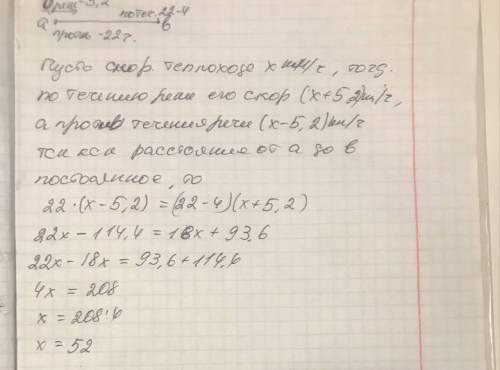 реки -5,2
по теч. 22-4
а в
против -22ч.
Пусть скор. теплохода x км/ч, тогда
по течению реки его скор (x+5,2)км/ч,
а против течения реки (x-5,2)км/ч
расстояние от а до в
постоянное, то
22·(x-5,2) = (22-4)(x+5,2)
22x-114,4 = 18x + 93,6
22x-18x = 93,6+114,4
4x = 208
x = 208:4
x = 52